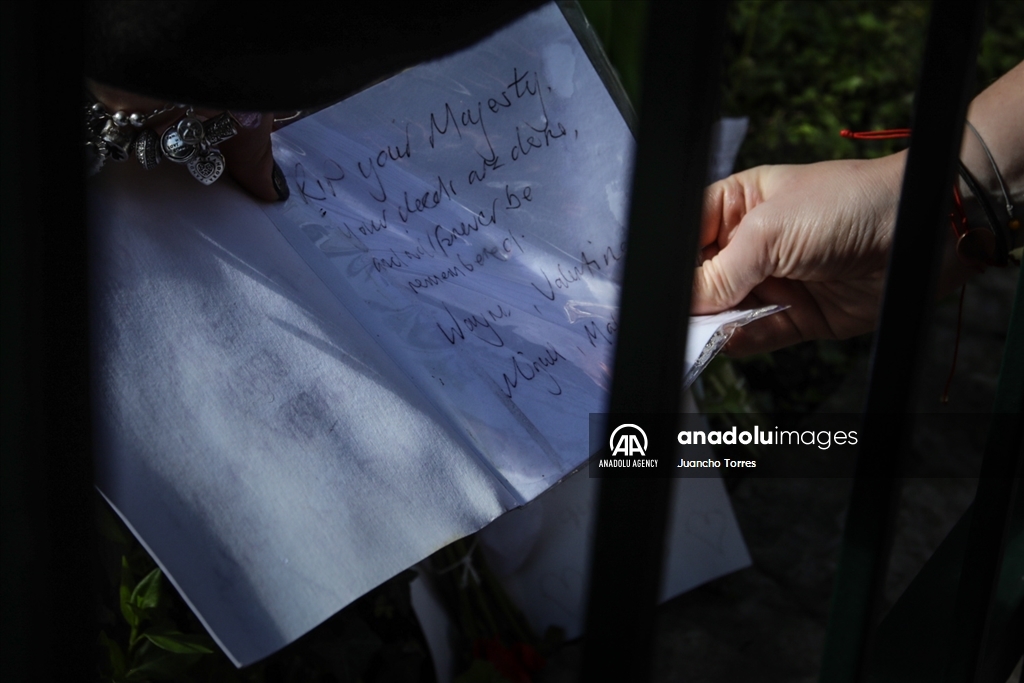 RIP your Majesty.
your deeds
and will forever be
remembered.
Wayne, Valentina
Miguel, Ma
AA
ANADOLU AGENCY
anadoluimages
Juancho Torres